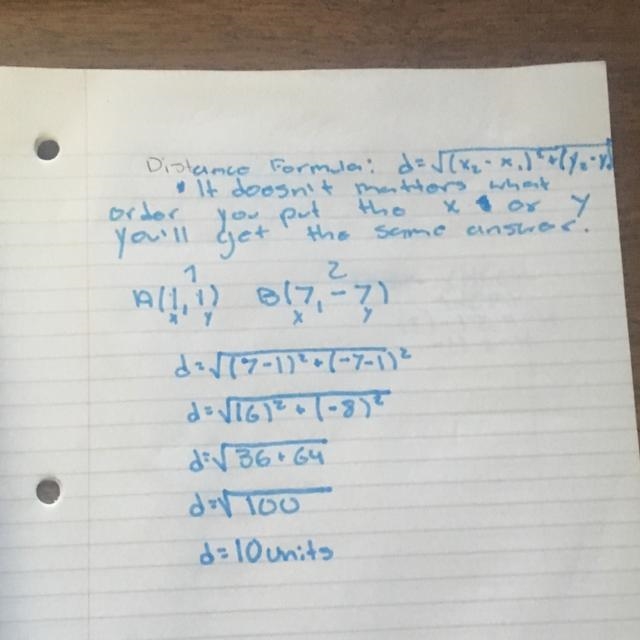 Distance Formula: d=√(x₂-x₁)²+(y₂-y
• It doesn't matters what
order you put the x or y
you'll get the same answer.
1 2
A(1,1) B(7,-7)
x y x y
d=√(7-1)²+(-7-1)²
d=√(6)²+(-8)²
d=√36+64
d=√100
d=10units